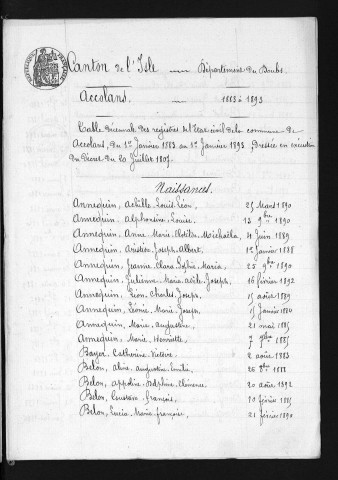 Canton de l'Isle — Département du Doubs.
Accolans. — 1883 à 1893
Table décennale des registres de l'état civil de la commune de
Accolans, du 1er Janvier 1883 au 1er Janvier 1893. Dressée en exécution
du Décret du 20 Juillet 1807.
Naissances.
Annequin, Achille Louis Léon 25 Mars 1890
Annequin, Alphonsine Louise 13 9bre 1890
Annequin, Anne Marie Clotilde 4 Juin 1889
Annequin, Aristide Joseph Albert 1er Janvier 1888
Annequin, Jeanne Clara Sophie Maria 25 9bre 1890
Annequin, Julienne Marie Joseph 16 février 1892
Annequin, Léon Charles Joseph 15 août 1889
Annequin, Léonie Marie Joseph 15 Janvier
Annequin, Marie Augustine 21 mai 1885
Annequin, Marie Henriette 7 1885
Boyer, Catherine 2 août 1883
Belon, Aline Augustine Emilie 26 1888
Belon, Appoline Delphine Clémence 20 août 1892
Belon, Constant François 10 février 1885
Belon, Lucia Marie françoise 21 février 1890